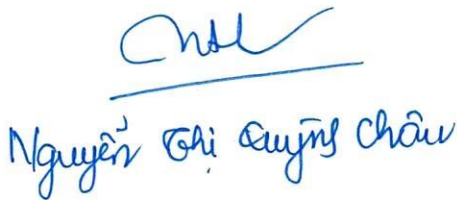 Nguyễn Thị Quỳnh Châu